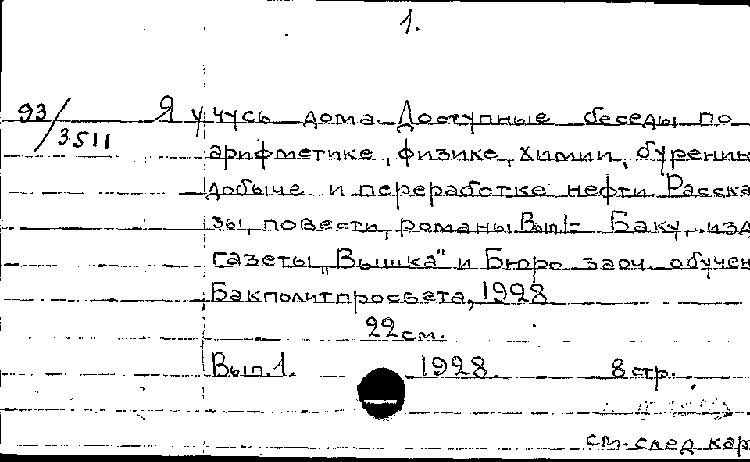 1.
93/3511 Я учусь дома. Доступные беседы по
арифметике, физике, химии, бурению
добыче и переработке нефти Расска
зы, повести, романы Вып1- Баку, изд
газеты „Вышка" и Бюро заоч. обучен
Бакполитпросвета, 1928
22см.
Вып.1. 1928 8 стр.
см. след кар